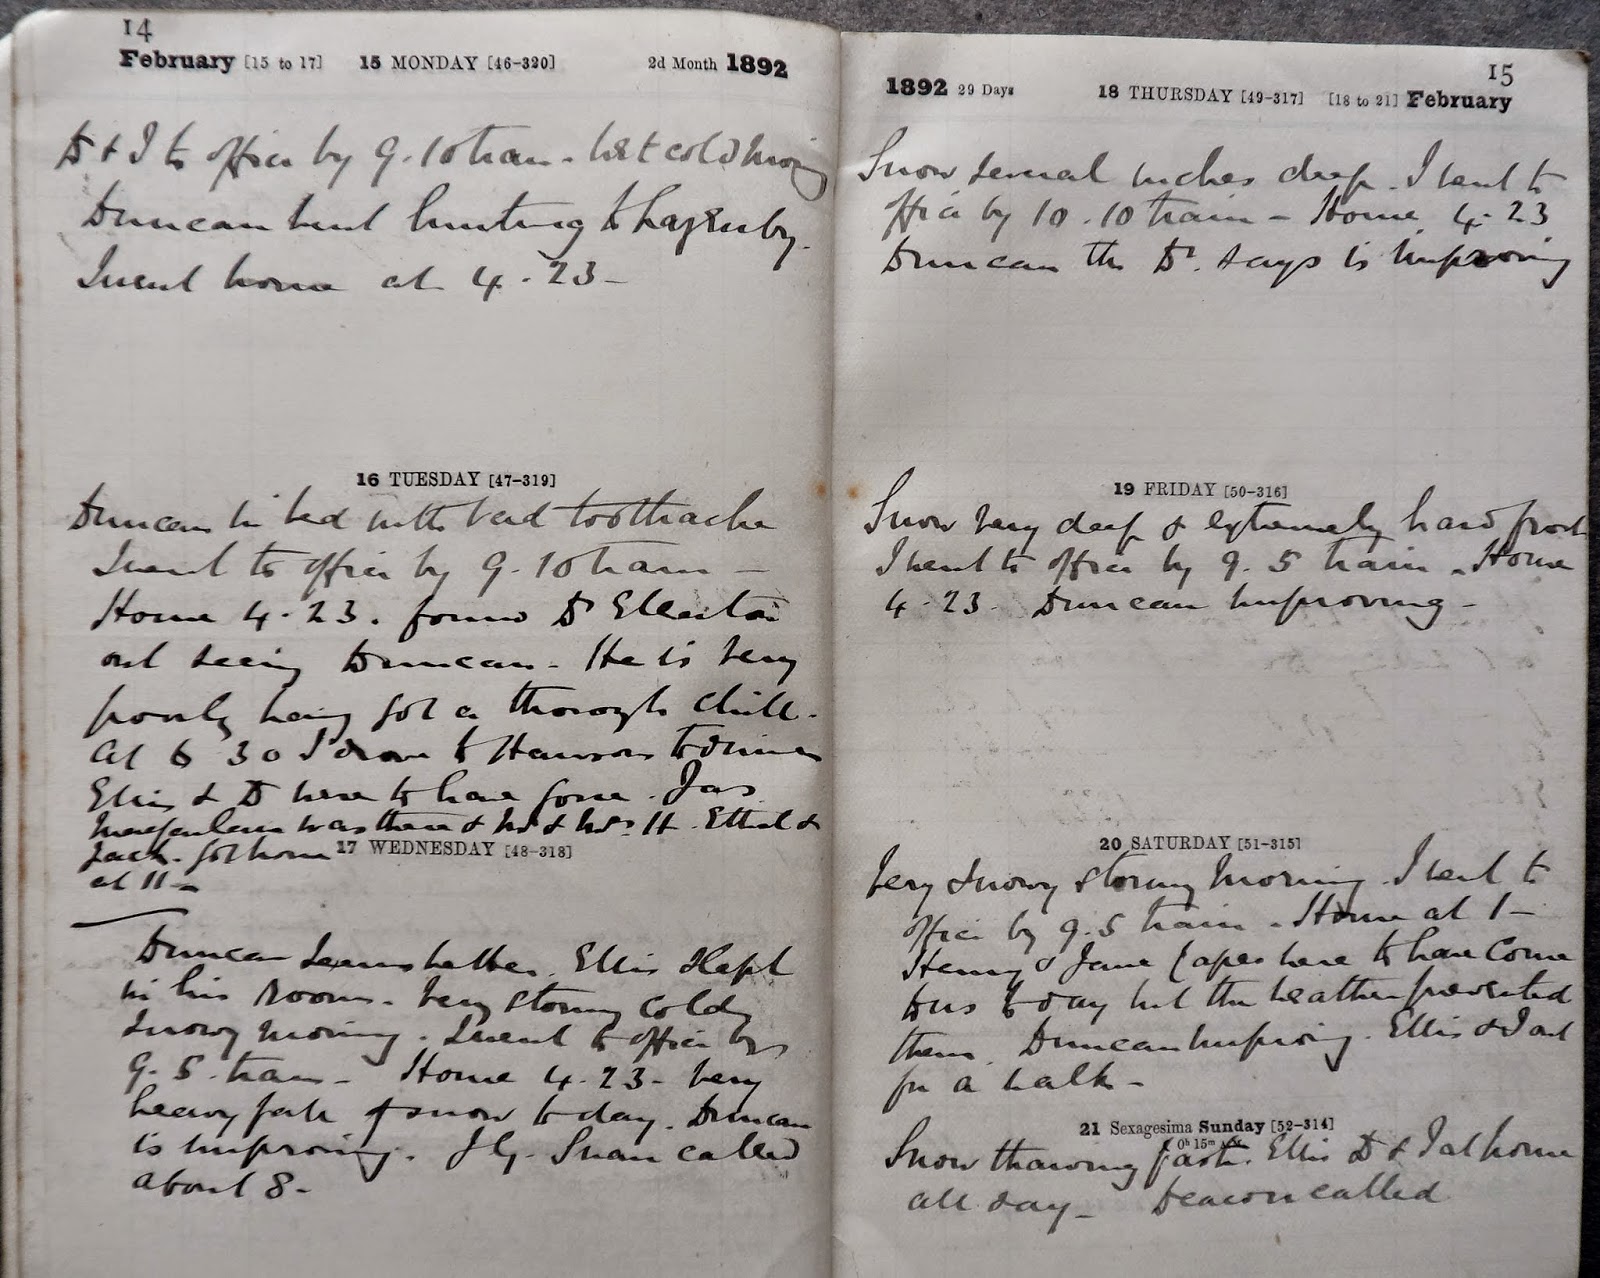 14
February [15 to 17] 15 MONDAY [46-320] 2d Month 1892
D & I to office by 9.10 train - wet cold morning
Duncan went hunting to
I went home at 4.23 -
16 TUESDAY [47-319]
Duncan in bed with bad toothache
I went to office by 9.10 train -
Home 4.23. found Dr
out seeing Duncan - He is very
poorly having got a thorough chill.
At 6 30 I drove to to dinner
Ellis & D were to have gone. Jas
was there & Mr & Mrs H. Ethel &
Jack. got home
17 WEDNESDAY [48-318]
at 11 -
Duncan seems better. Ellis slept
in his room. Very stormy cold
snowy morning. I went to office by
9.5 train - Home 4.23 - very
heavy fall of snow to day. Duncan
is improving. called
about 8 -
15
1892 29 Days 18 THURSDAY [49-317] [18 to 21] February
Snow several inches deep. I went to
office by 10.10 train - Home 4.23
Duncan the Dr. says is improving
19 FRIDAY [50-316]
Snow very deep & extremely hard frost
I went to office by 9.5 train. Home
4.23. Duncan improving -
20 SATURDAY [51-315]
Very snowy stormy morning. I went to
office by 9.5 train. Home at 1 -
Henry & Jane were to have come
to day but the weather prevented
them. Duncan improving. Ellis & I out
for a walk -
21 Sexagesima Sunday [52-314]
0h 15m
Snow thawing fast. Ellis D & I at home
all day - Deacon called